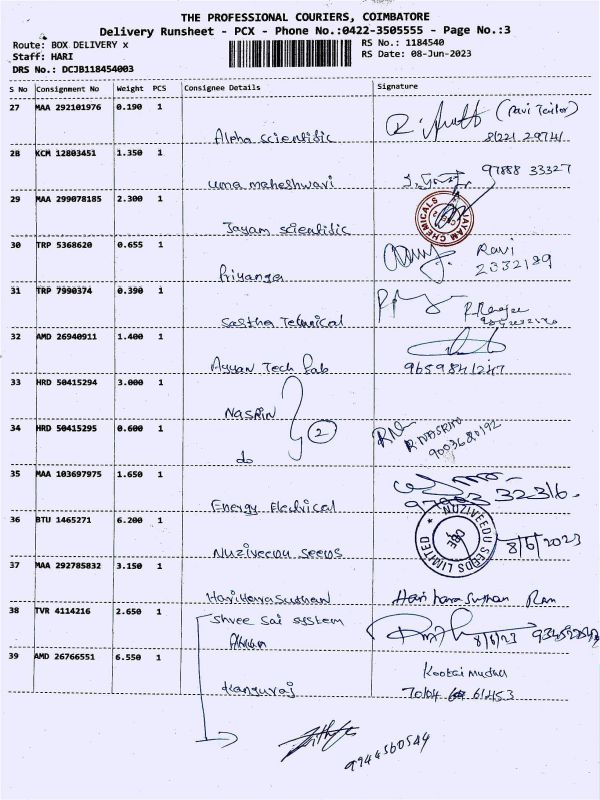 THE PROFESSIONAL COURIERS, COIMBATORE
Delivery Runsheet - PCX - Phone No.:0422-3505555 - Page No.:3
Route: BOX DELIVERY x RS No.: 1184540
Staff: HARI RS Date: 08-Jun-2023
DRS No.: DCJB118454003
S No Consignment No Weight PCS Consignee Details Signature
27 MAA 292101976 0.190 1 (Ravi Tailor)
Alpha scientific
28 KCM 12803451 1.350 1 97888 33327
uma maheshwari
29 MAA 299078185 2.300 1 JAYAM CHEMICALS
Jayam scientific
30 TRP 5368620 0.655 1 Ravi
Priyanga 2332189
31 TRP 7990374 0.390 1
Sastha Technical
32 AMD 26940911 1.400 1
Ayyan Tech Lab 9659841247
33 HRD 50415294 3.000 1
NASRIN
34 HRD 50415295 0.600 1 2 R NASRIN
do 9003680192
35 MAA 103697975 1.650 1
Energy Electrical
36 BTU 1465271 6.200 1 NUZIVEEDU SEEDS LIMITED
Nuziveedu Seeds 8/6/2023
37 MAA 292785832 3.150 1
Hariharasudhan Hariharasudhan Ram
38 TVR 4114216 2.650 1 Shree Sai system
8/6/23
39 AMD 26766551 6.550 1
Kanguraj
9944560549